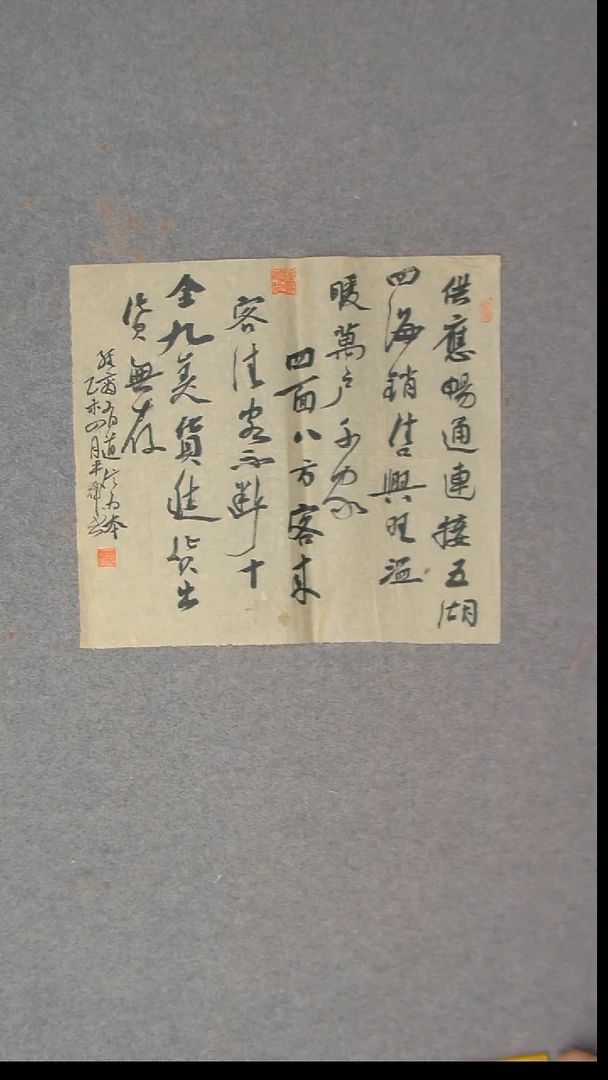 供應暢通連接五湖
四海銷售興旺温
暖萬户千家
四面八方客来
客往客不斷十
全九美貨進貨出
貨無存
經商有道信为本
乙未四月